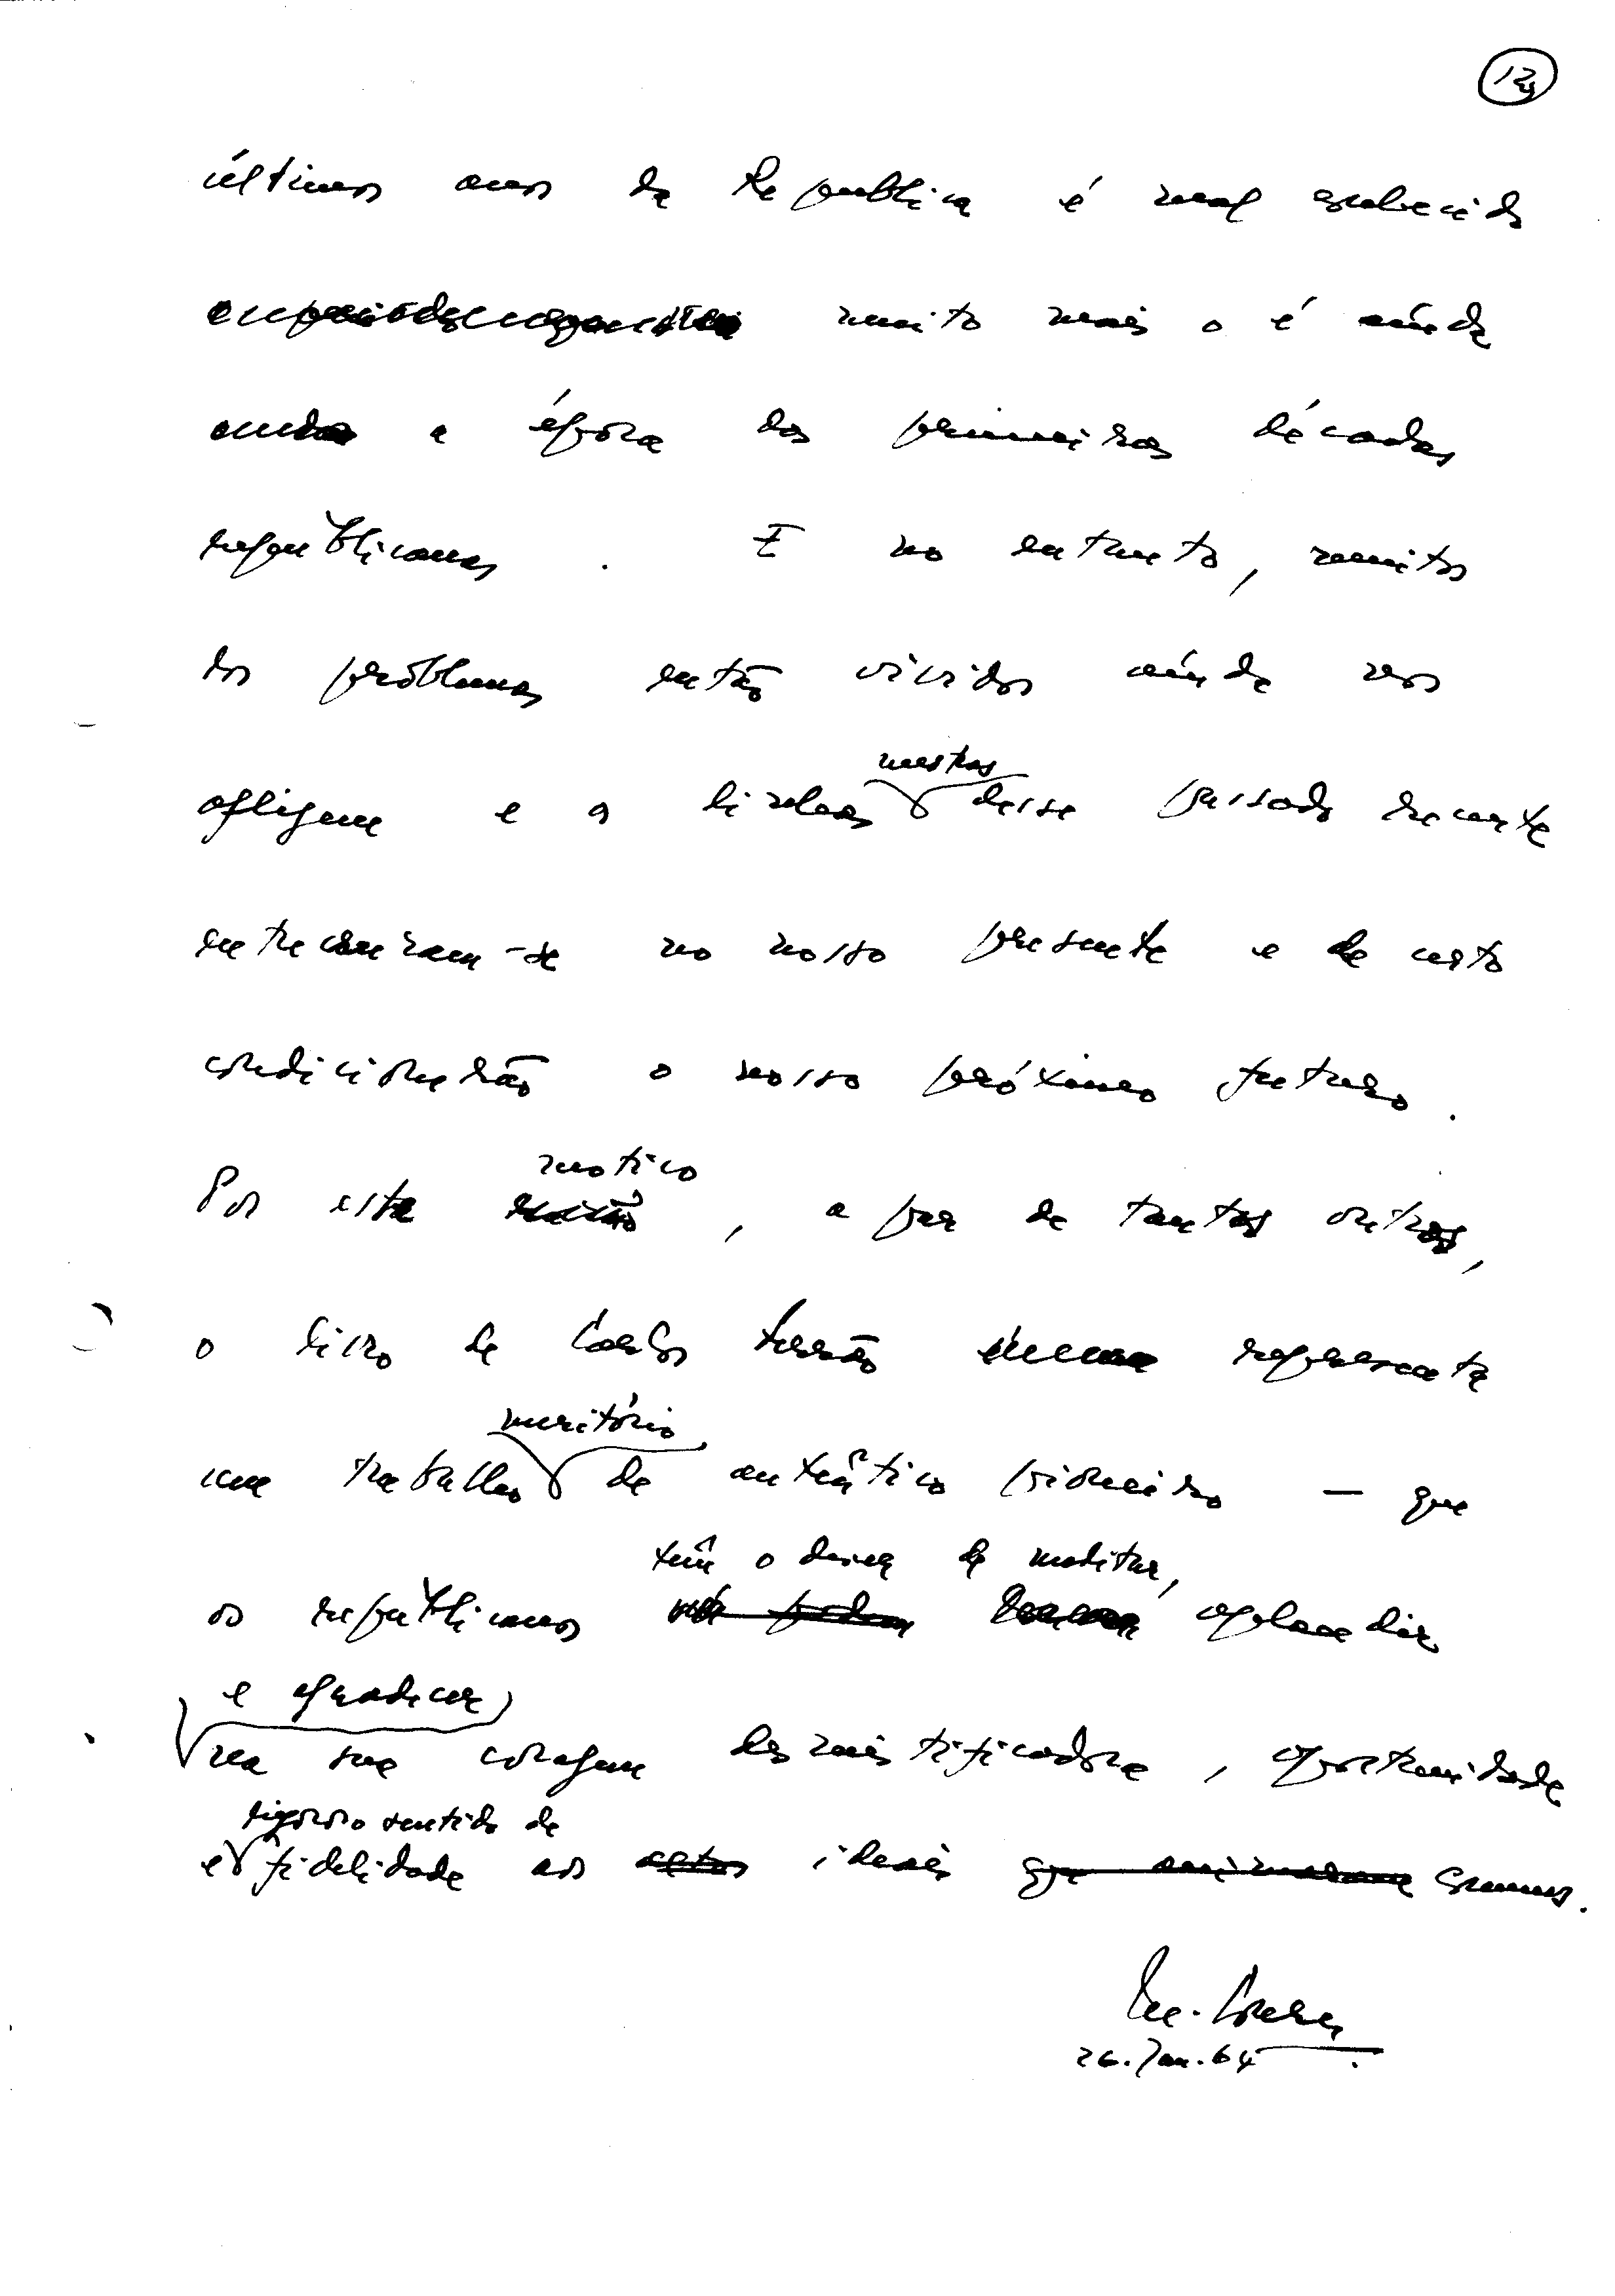 12
últimos anos da República é mal conhecido
muito mais o é ainda
a época das primeiras décadas
republicanas. E no entanto, muitos
dos problemas então vividos ainda nos
afligem e as linhas mestras desse passado recente
entrecruzam-se no nosso presente e de certo
condicionarão o nosso próximo futuro.
motivo
Por este, a par de tantos outros,
o livro de Carlos Ferrão representa
meritório
um trabalho de autêntico pioneiro — que
têm o dever de meditar,
os republicanos aplaudir
e agradecer,
na sua coragem desmistificadora, oportunidade
rigoroso sentido de
e fidelidade aos ideais comuns.
26. Jan. 64